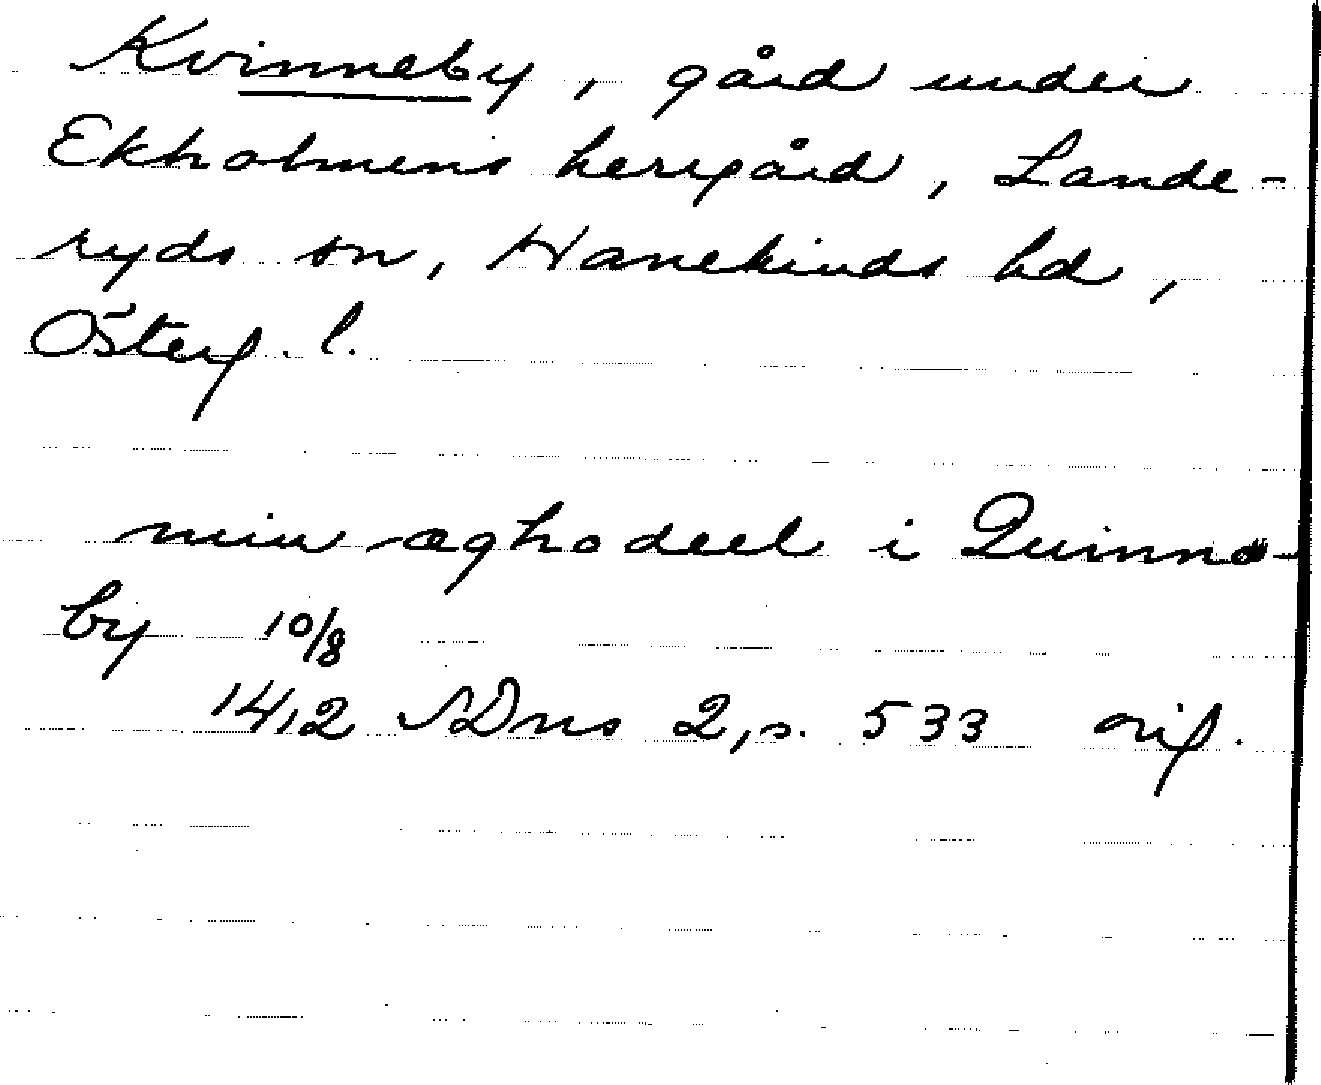 Kvinneby, gård under
Ekholmens herrgård, Lande-
ryds sn, Hanekinds hd,
Österg. l.
min æghodeel i Quinno-
by 10/8
1412 SDns 2, s. 533 orig.